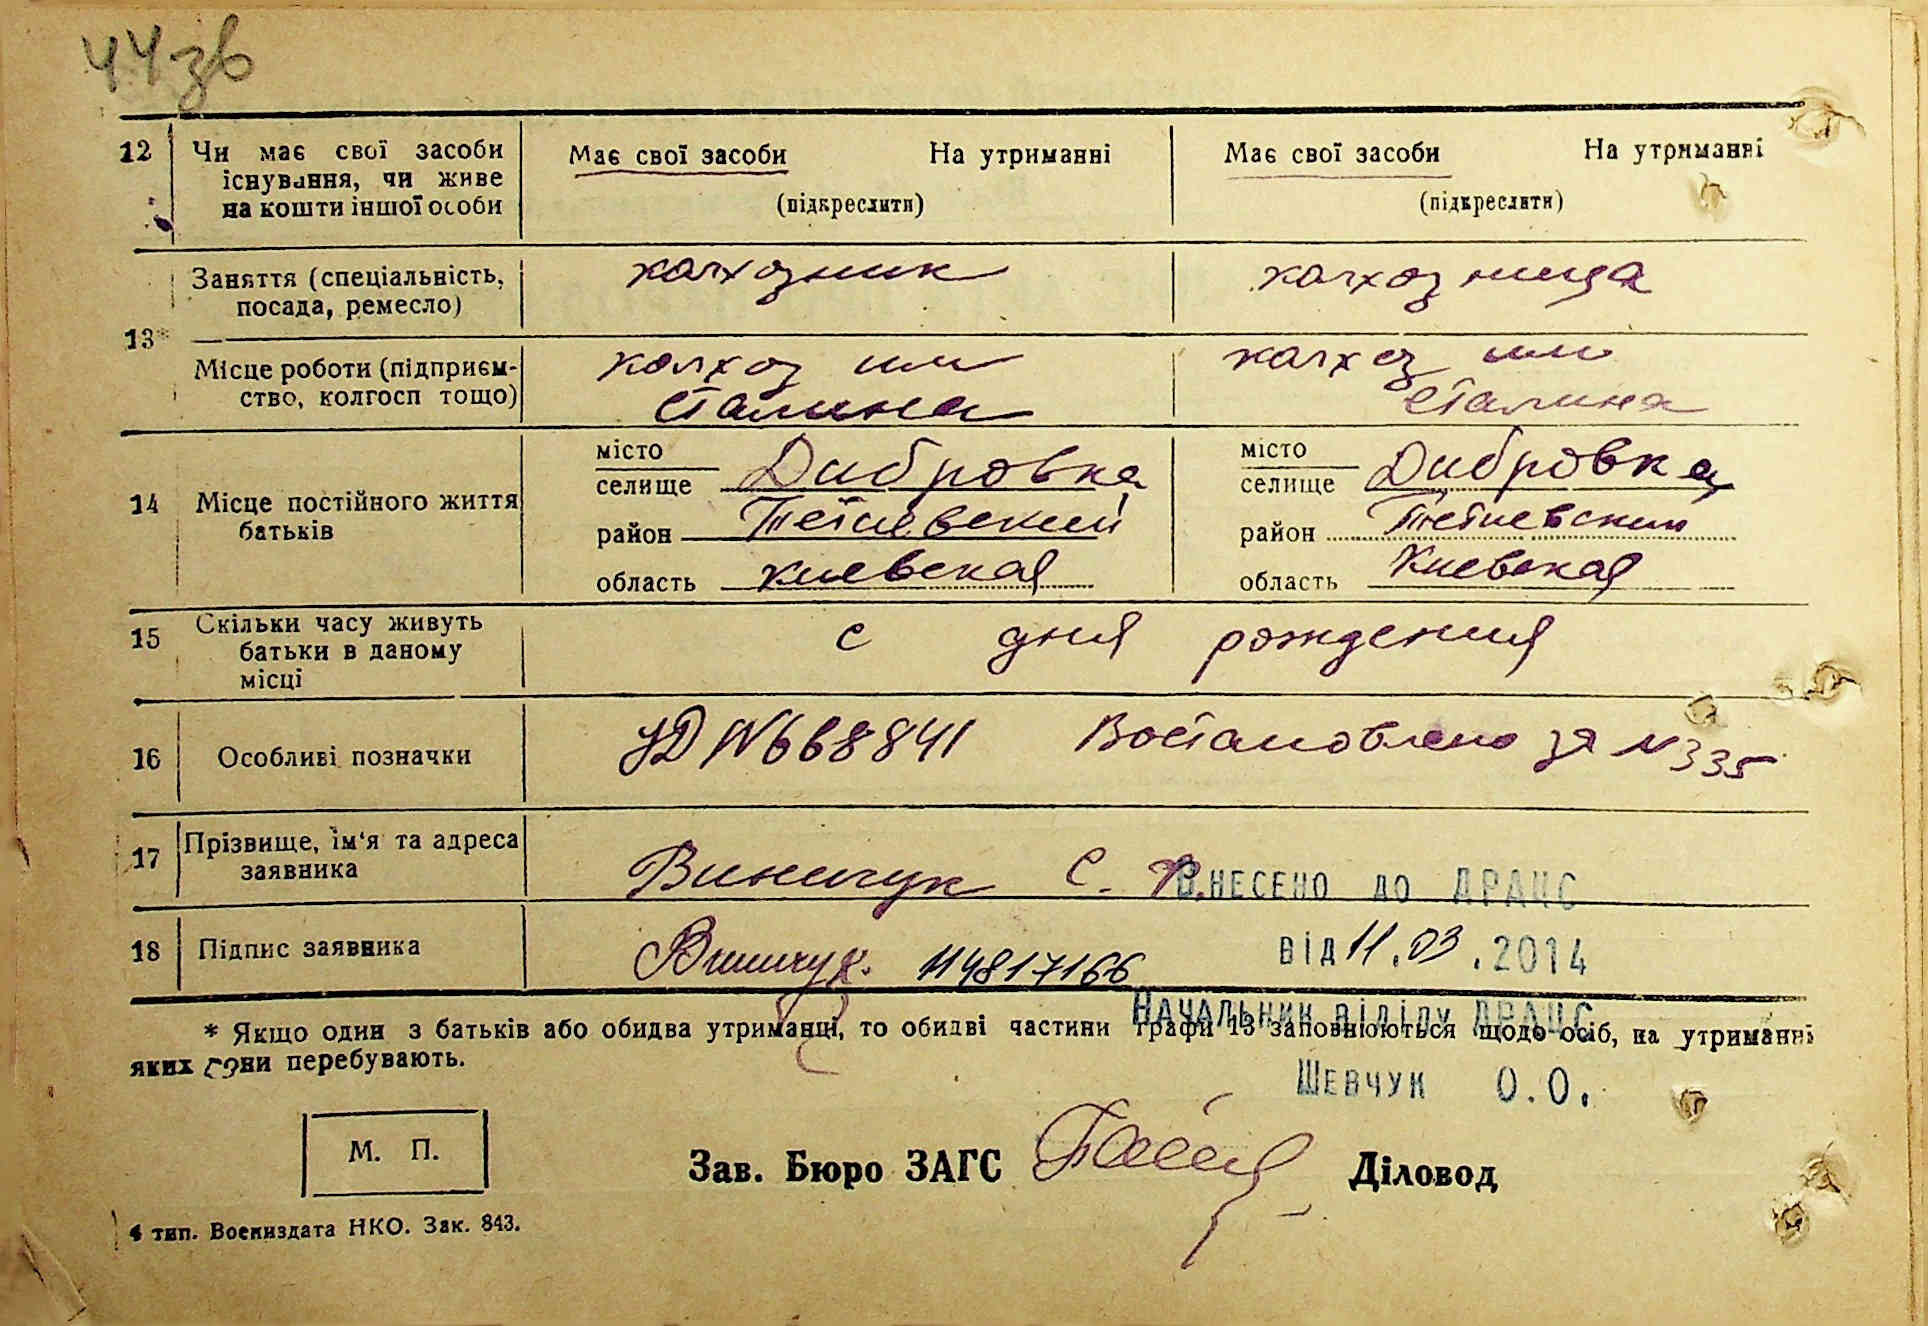 44 зв
12 Чи має свої засоби існування, чи живе на кошти іншої особи
Має свої засоби На утриманні
(підкреслити)
Має свої засоби На утриманні
(підкреслити)
13*
Заняття (спеціальність, посада, ремесло)
колхозник
колхозница
Місце роботи (підприєм-
ство, колгосп тощо)
колхоз им
Сталина
колхоз им
Сталина
14 Місце постійного життя
батьків
місто
селище Дибровка
район Тетиевский
область Киевская
місто
селище Дибровка
район Тетиевский
область Киевская
15 Скільки часу живуть
батьки в даному
місці
с дня рождения
16 Особливі позначки
УД №668841 Востановлено за №335
17 Прізвище, ім'я та адреса
заявника
Виничук С.
ВНЕСЕНО ДО ДРАЦС
18 Підпис заявника
Виничук. 114817166
ВІД 11.03.2014
НАЧАЛЬНИК ВІДІЛУ ДРАЦС
* Якщо один з батьків або обидва утриманці, то обидві частини графи 13 заповнюються щодо осіб, на утриманні
яких вони перебувають.
ШЕВЧУК О.О.
М. П.
Зав. Бюро ЗАГС
Діловод
4 тип. Воениздата НКО. Зак. 843.